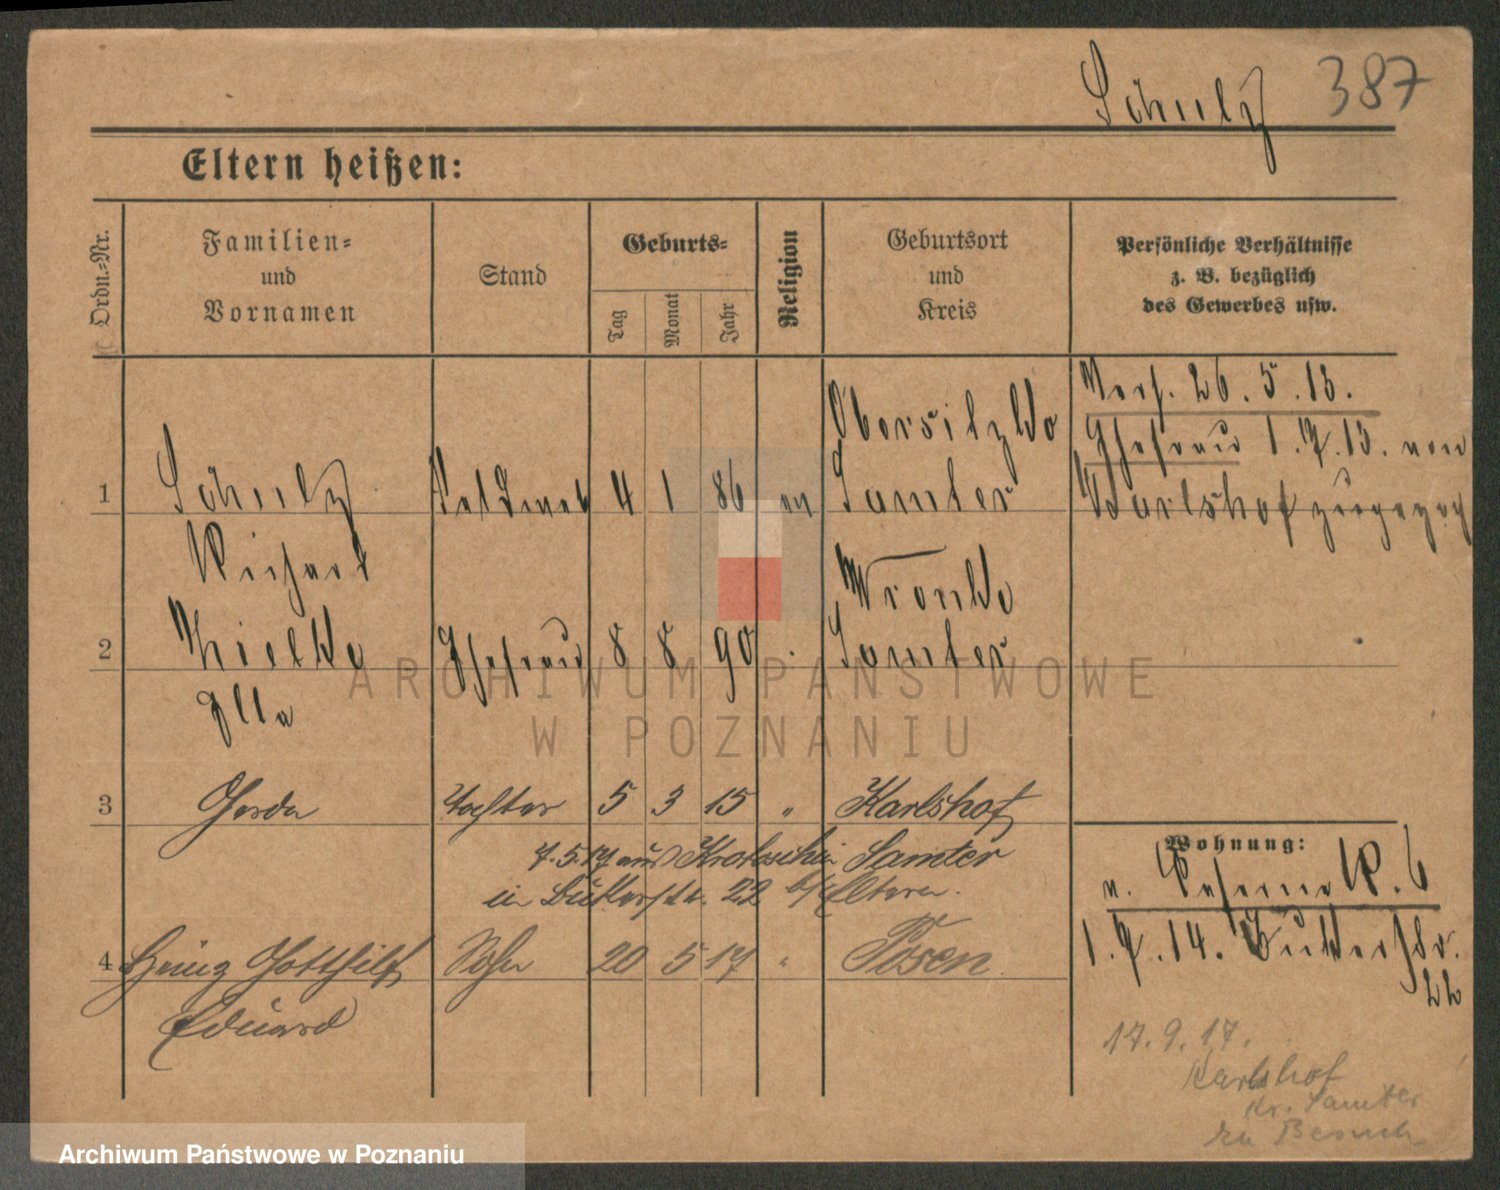 Schulz 387
Eltern heißen:
Ordn.=Nr.
Familien=
und
Vornamen
Stand
Geburts=
Tag
Monat
Jahr
Religion
Geburtsort
und
Kreis
Persönliche Verhältnisse
z. B. bezüglich
des Gewerbes usw.
1 Schulz Feldweb 4 1 86 ev Obersitzko
Samter
Richard
26. 5. 13.
Ehefrau 1. 7. 13. von
Karlshof zugezog
2 Thielke Ehefrau 8 8 90 Wronke
Samter
Ella
3 Gerda Tochter 5 3 15 " Karlshof
7. 5. 17 aus Krotoschin Samter
in Bukerstr. 22 b/Eltern.
4 Heinz Gotthilf Sohn 20 5 17 " Posen
Eduard
Wohnung:
Kaserne 6
1. 7. 14. Bukerstr.
22
17. 9. 17.
Karlshof
Kr. Samter
zu Besuch
ARCHIWUM PAŃSTWOWE
W POZNANIU
Archiwum Państwowe w Poznaniu